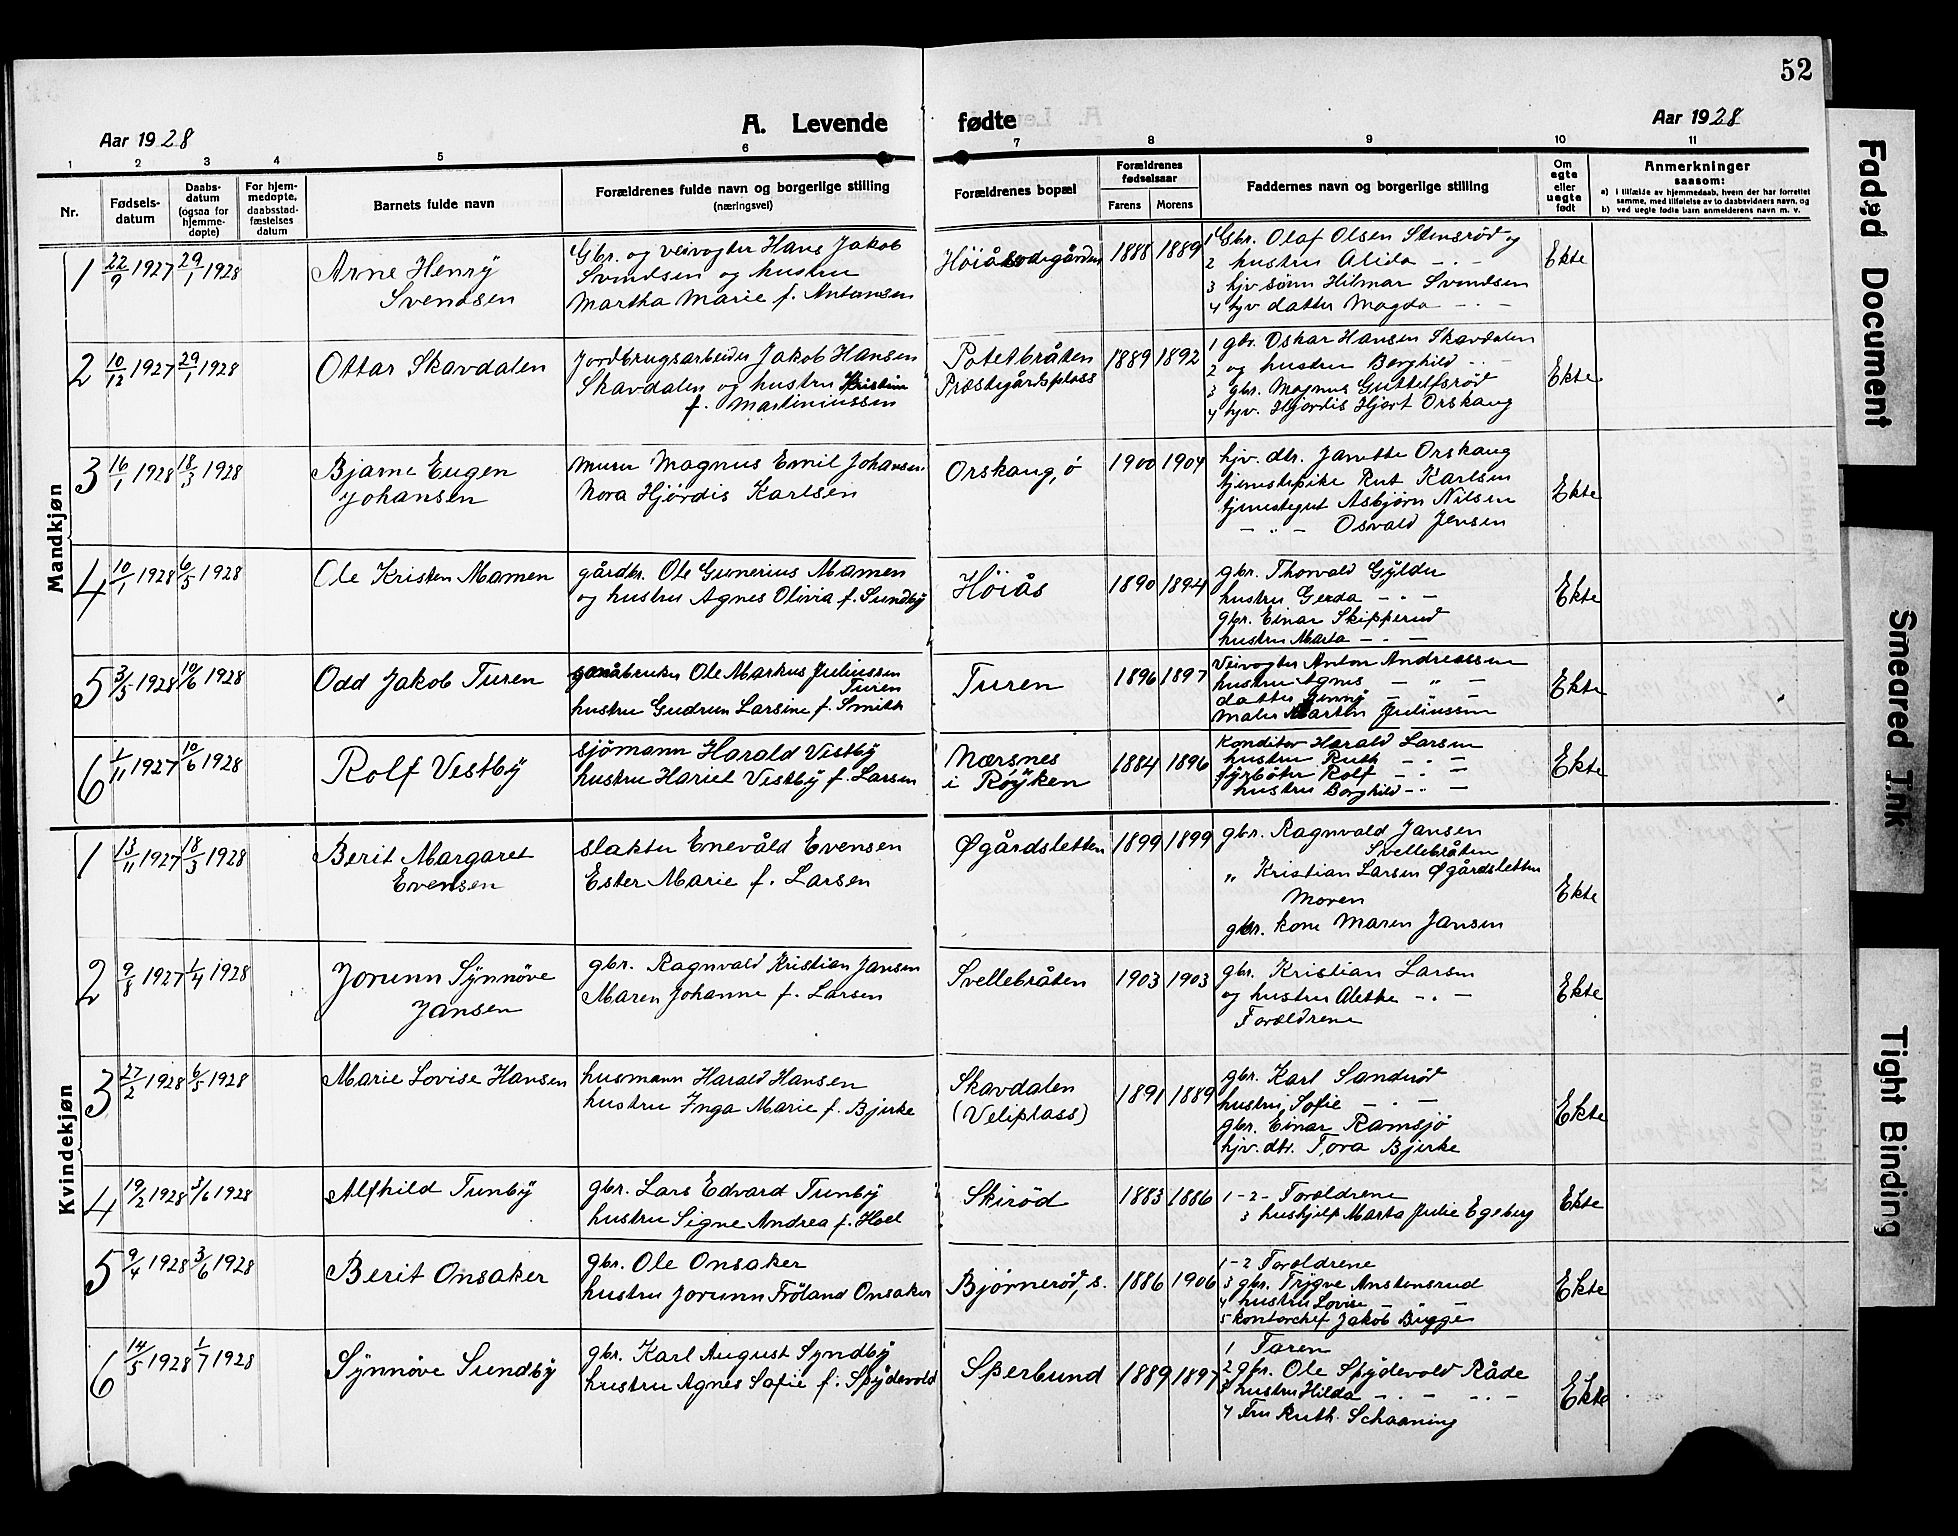 52
A. Levende fødte
Aar 1928
Aar 1928
1 2 3 4 5 6 7 8 9 10 11
Nr.
Fødsels-
datum
Daabs-
datum
(ogsaa for
hjemme-
døpte)
For hjem-
medøpte,
daabsstad-
fæstelses
datum
Barnets fulde navn
Forældrenes fulde navn og borgerlige stilling
(næringsvei)
Forældrenes bopæl
Forældrenes
fødselsaar
Farens Morens
Faddernes navn og borgerlige stilling
Om
ægte
eller
uegte
født
Anmerkninger
saasom:
a) i tilfælde av hjemmedaab, hvem der har forrettet
samme, med tilføielse av to daabsvidners navn, og
b) ved uegte fødte barn anmelderens navn m. v.
Mandkjøn
1 22/9 1927 29/1 1928
Arne Henry
Svendsen
Gbr. og veivogter Hans Jakob
Svendsen og hustru
Martha Marie f. Antonsen
1888 1889
1 Gbr. Olaf Olsen Stensrød og
2 hustru Alida - . -
3 hjv sønn Hilmar Svendsen
4 hjv datter Magda - . -
Ekte
2 10/12 1927 29/1 1928
Ottar Skavdalen
Jordbrugsarbeider Jakob Hansen
Skavdalen og hustru Kristine
f. Martiniussen
Potetbråten
Præstegårdsplass
1889 1892
1 gbr. Oskar Hansen Skavdalen
2 og hustru Borghild - . -
3 gbr. Magnus Guttelfsrød
4 hjv. Hjørdis Hjort Orskaug
Ekte
3 16/1 1928 18/3 1928
Bjarne Eugen
Johansen
Murer Magnus Emil Johansen
Nora Hjørdis Karlsen
Orskaug, ø
1900 1904
hjv. dtr. Janette Orskaug
tjenestepike Rut Karlsen
tjenestegut Asbjørn Nilsen
- . - Osvald Jensen
Ekte
4 10/1 1928 6/5 1928
Ole Kristen Mamen
gårdbr. Ole Gunerius Mamen
og hustru Agnes Olivia f. Sundby
Höiås
1890 1894
gbr. Thorvald Gylder
hustru Gerda - . -
gbr. Einar Skipperud
hustru Marta - . -
Ekte
5 3/5 1928 10/6 1928
Odd Jakob Turen
gårdbruker Ole Markus Juliussen
Turen
hustru Gudrun Larsine f. Smith
Turen
1896 1897
Veivogter Anton Andreassen
hustru Agnes - " -
datter Jenny - " -
Maler Martin Juliussen
Ekte
6 1/11 1927 10/6 1928
Rolf Vestby
sjømann Harald Vestby
hustru Hariet Vestby f. Larsen
Nærsnes
i Røyken
1884 1896
Konditor Harald Larsen
hustru Ruth - . -
fyrbøter Rolf - . -
hustru Borghild - . -
Ekte
Kvindekjøn
1 13/11 1927 18/3 1928
Berit Margaret
Evensen
slakter Enevåld Evensen
Ester Marie f. Larsen
Øgårdsletten
1899 1899
gbr. Ragnvald Jansen
Svellebråten
" Kristian Larsen Øgårdsletten
Moren
gbr. kone Maren Jansen
Ekte
2 9/8 1927 1/4 1928
Jorunn Synnøve
Jansen
gbr. Ragnvald Kristian Jansen
Maren Johanne f. Larsen
Svellebråten
1903 1903
gbr. Kristian Larsen
og hustru Alette - . -
Foreldrene
Ekte
3 27/2 1928 6/5 1928
Marie Lovise Hansen
husmann Harald Hansen
hustru Inga Marie f. Bjerke
Skavdalen
(Veliplass)
1891 1889
gbr. Karl Sanderød
hustru Sofie - . -
gbr. Einar Ramsjö
hjv. dtr. Tora Bjerke
Ekte
4 19/2 1928 3/6 1928
Alfhild Tunby
gbr. Lars Edvard Tunby
hustru Signe Andrea f. Hoel
Skiröd
1883 1886
1-2- Foreldrene
3 hushjelp Marta Julie Egeberg
Ekte
5 9/4 1928 3/6 1928
Berit Onsaker
gbr. Ole Onsaker
hustru Jorunn Fröland Onsaker
Bjørnerød, s.
1886 1906
1-2 Foreldrene
3 gbr. Trygve Anstensrud
4 hustru Lovise - -
5 kontorchef Jakob Bugge
Ekte
6 14/5 1928 1/7 1928
Synnøve Sundby
gbr. Karl August Syndby
hustru Agnes Sofie f. Spydevold
Sperbund
1889 1897
1 Faren
2 gbr. Ole Spydevold Råde
3 hustru Hilda - . - - . -
4 Fru Ruth Schaaning
Ekte
Faded Document
Smeared Ink
Tight Binding